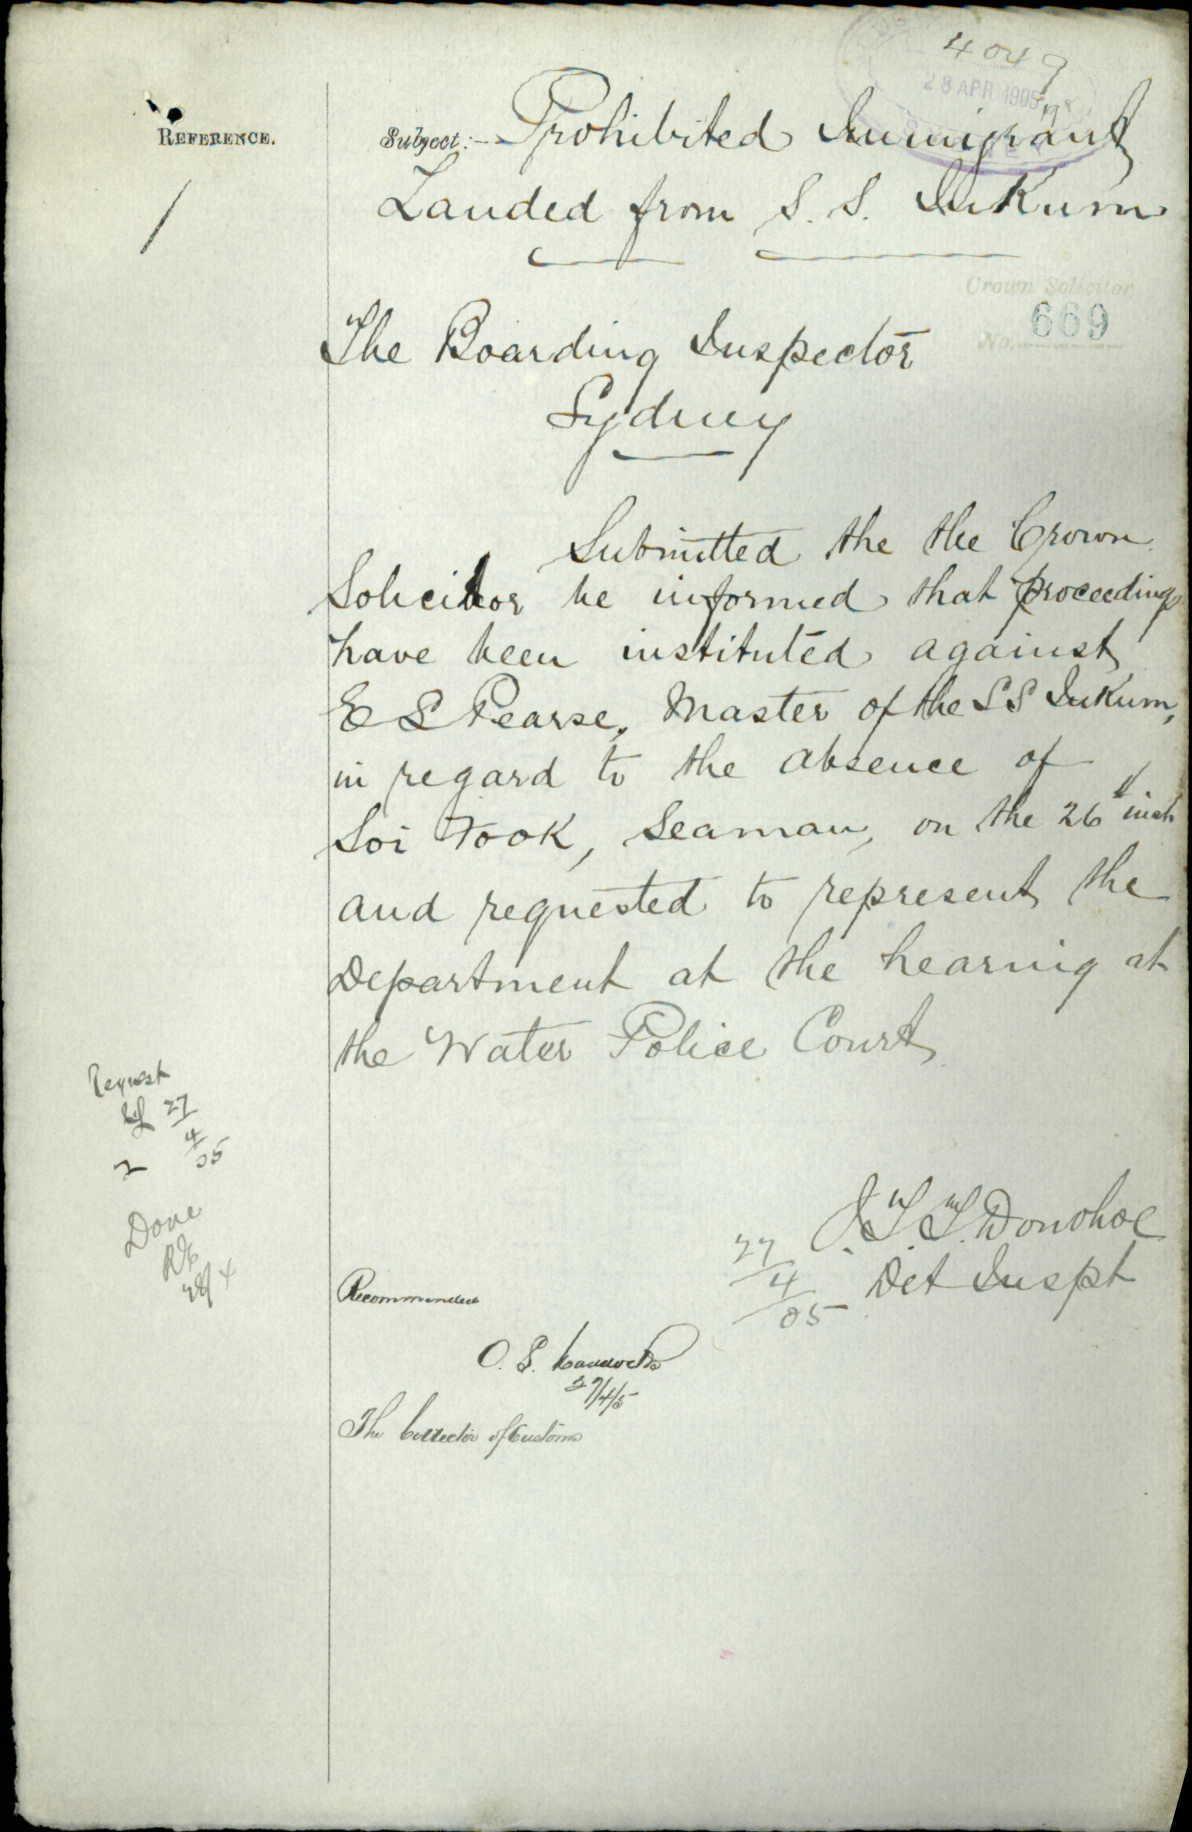 4049
28 APR 1905
REFERENCE.
Subject:- Prohibited Immigrant
Landed from S. S. Inkum
Crown Solicitor
No. 669
The Boarding Inspector
Sydney
Submitted the the Crown
Solicitor be informed that proceedings
have been instituted against
E S Pearse, Master of the S S Inkum,
in regard to the absence of
Soi Fook, Seaman, on the 26th inst
and requested to represent the
Department at the hearing at
the Water Police Court
Request
27/4/05
Done
28/4
J. T. T. Donohoe
27/4/05 Det Inspt
Recommended
O. S.
27/4/5
The Collector of Customs